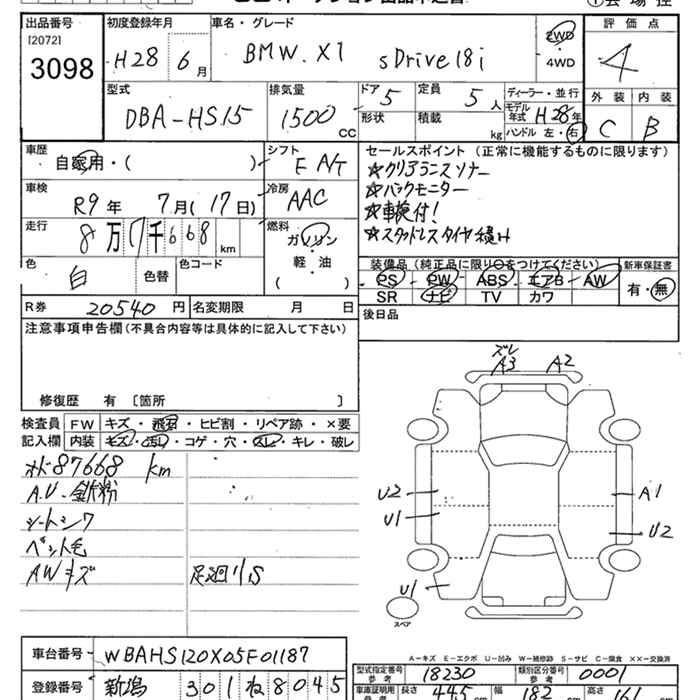 出品番号 初度登録年月 車名・グレード 評価点
[2072] 3098 H28 6月 BMW. X1 sDrive18i 2WD 4WD 4
型式 DBA-HS15 排気量 1500 CC ドア 5 定員 5人 ディーラー・並行 外装 内装
形状 積載 kg モデル年式 H28年 ハンドル 左・右 C B
車歴 自家用・( ) シフト F A/T セールスポイント (正常に機能するものに限ります)
車検 R9年 7月(17日) 冷房 AAC ☆クリアランスソナー
☆バックモニター
☆車検付!
走行 8万7千668km 燃料 ガソリン 軽・油 ( ) ☆スタッドレスタイヤ積み
色 白 色替 色コード 装備品 (純正品に限り○をつけてください) 新車保証書
PS PW ABS エアB AW 有・無
SR ナビ TV カワ
R券 20540円 名変期限 月 日 後日品
注意事項申告欄 (不具合内容等は具体的に記入して下さい)
修復歴 有 〔箇所 〕
検査員記入欄 FW キズ・飛石・ヒビ割・リペア跡・×要
内装 キズ・汚れ・コゲ・穴・スレ・キレ・破レ
オド87668km
A.U-鉄粉
シートシワ
ペット毛
AWキズ 足廻りS
ズレ
A3 A2
U2 A1
U1 U2
U1
スペア
車台番号 WBAHS120X05F01187
登録番号 新潟 301 ね 8045
A-キズ E-エクボ U-凹み W-補修跡 S-サビ C-腐食 ××-交換済
型式指定番号 参考 18230 類別区分番号 参考 0001
車庫証明用 参考 長さ 445 cm 幅 182 cm 高さ 161 cm